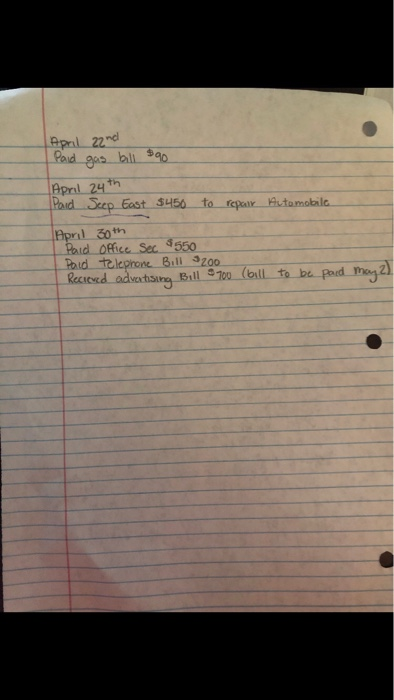 April 22nd
Paid gas bill $90
April 24th
Paid Jeep East $450 to repair Automobile
April 30th
Paid Office Sec $550
Paid telephone Bill $200
Recieved advertising Bill $700 (bill to be paid may 2)